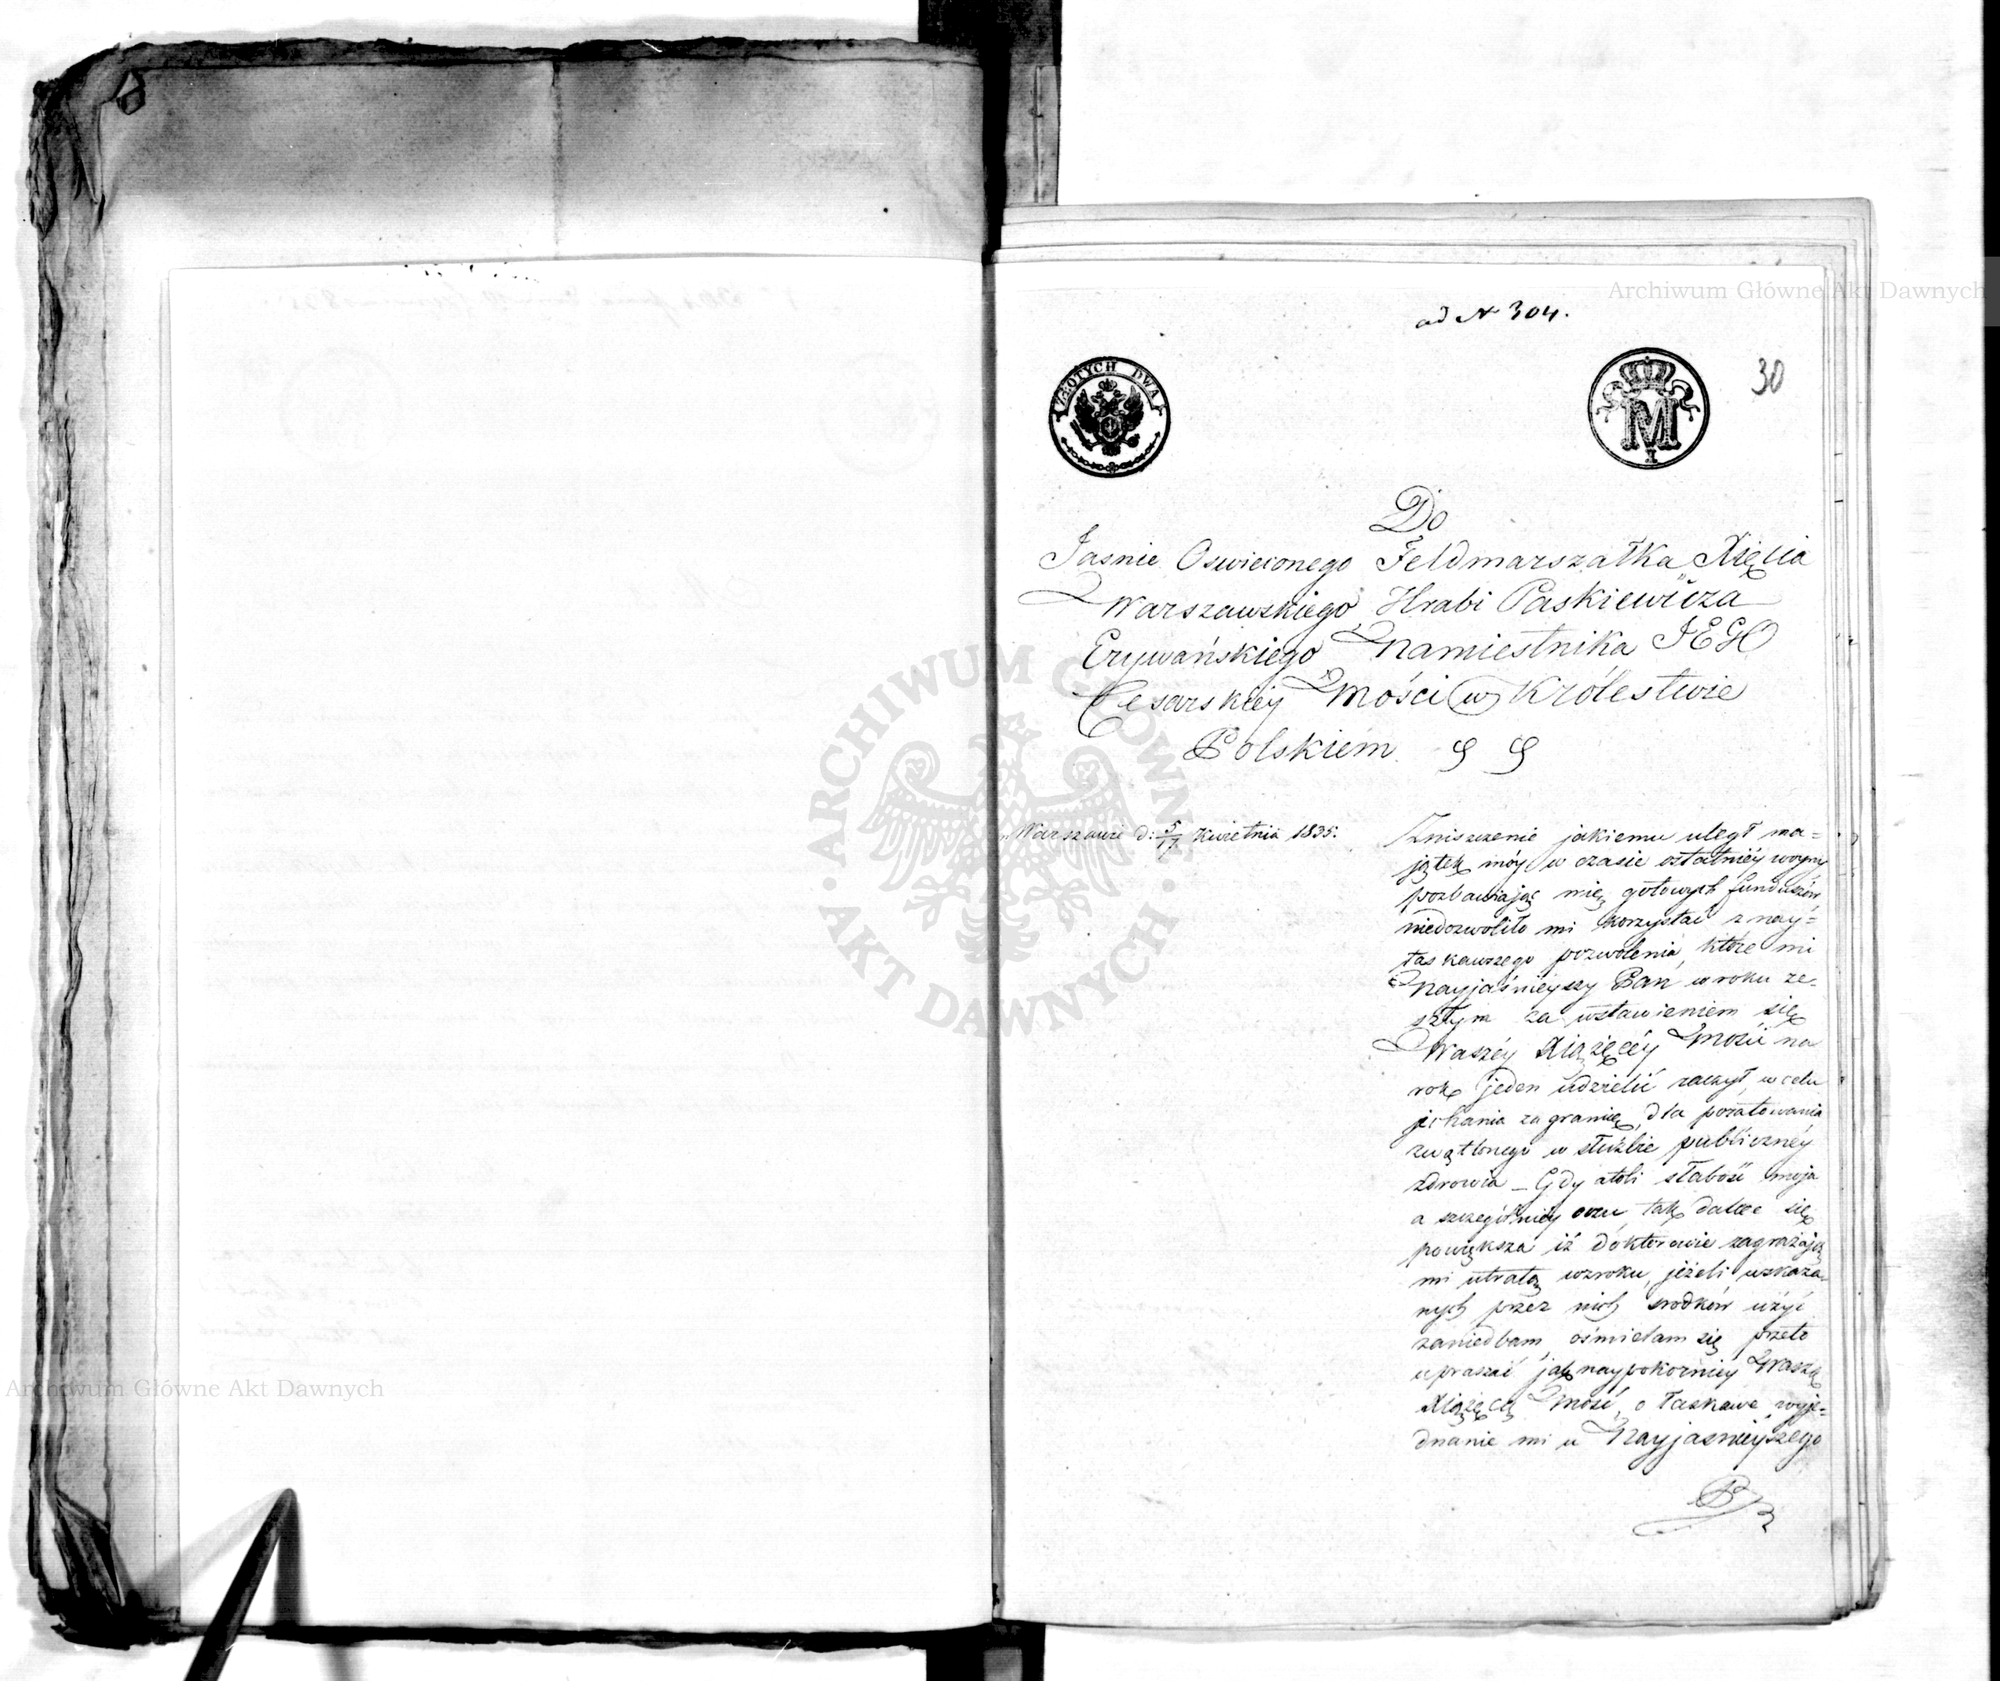 ad N 304.
30
ZŁOTYCH DWA
M
I
Do
Jasnie Oswieconego Feldmarszałka Xięcia
Warszawskiego, Hrabi Paskiewicza
Erywańskiego Namiestnika JEGO
Cesarskiéy Mości w Królestwie
Polskiem
w Warszawie d: 5/17 Kwietnia 1835.
Zniszczenie jakiemu uległ ma=
jątek móy w czasie ostatniéy woyny
pozbawiając mię gotowych funduszów,
niedozwoliło mi korzystać z nay=
łaskawszego pozwolenia, które mi
Nayjaśnieyszy Pan w roku ze-
szłym za wstawieniem się
Waszéy Xiążęcéy Mości na
rok jeden udzielić raczył, w celu
jechania zagranicę, dla poratowania
zwątlonego w służbie publicznéy
zdrowia – Gdy atoli słabość moja
a szczególniéy oczu, tak dalece się
powiększa iż doktorowie zagrażają
mi utratą wzroku, jeżeli wskaza-
nych przez nich srodków użyć
zaniedbam, ośmielam się przeto
upraszać jak naypokorniéy Waszą
Xiążęcą Mość, o łaskawe wyje=
dnanie mi u Nayjasnieyszego
ARCHIWUM GŁÓWNE AKT DAWNYCH
Archiwum Główne Akt Dawnych
Archiwum Główne Akt Dawnych